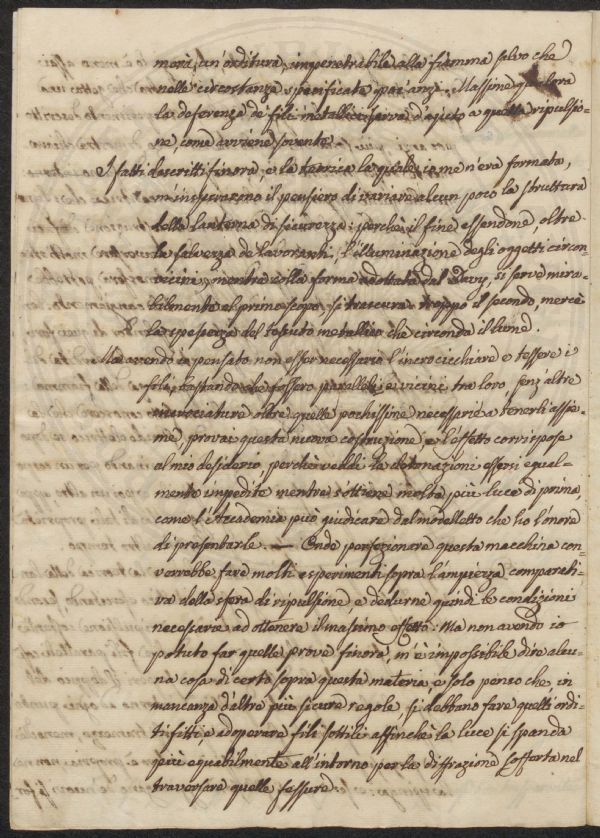 morà, un'orditura, impenetrabile alla fiamma salvo che
nelle circostanze specificate poc'anzi. Massime qualora
la deferenza de' fili metallici serva d'ajuto a quella ripulsio-
ne, come avviene sovente.
I fatti descritti finora, e la teorica la quale io me n'era formata,
m'inspirarono il pensiero di variare alcun poco la struttura
della lanterna di sicurezza: perchè il fine essendone, oltre
la salvezza de' lavoranti, l'illuminazione degli oggetti circon-
vicini, mentre colla forma adottata dal Davy, si serve mira-
bilmente al primo scopo, si trascura troppo il secondo, mercè
la spessezza del tessuto metallico che circonda il lume.
Ma avendo io pensato non esser necessario l'incrocicchiare e tessere i
fili, bastando che fossero paralleli e vicini tra loro senz'altre
incrociature oltre quelle pochissime necessarie a tenerli assie-
me, provai questa nuova costruzione, e l'effetto corrispose
al mio desiderio, perchè vedi le detonazioni essersi egual-
mente impedite mentre s'ottiene molta più luce di prima,
come l'Accademia può giudicare dal modelletto che ho l'onore
di presentarle. — Onde perfezionare questa macchina con-
verrebbe fare molti esperimenti sopra l'ampiezza comparati-
va della sfera di ripulsione e dedurne quindi le condizioni
necessarie ad ottenere il massimo effetto: Ma non avendo io
potuto far quelle prove finora, m'è impossibile dire alcu-
na cosa di certo sopra questa materia, e solo penso che in
mancanza d'altre più sicure regole si debbano fare quelli ordi-
ti fitti e adoperare fili sottili affinchè la luce si spanda
più equabilmente all'intorno per la diffrazione sofferta nel
traversare quelle fessure.